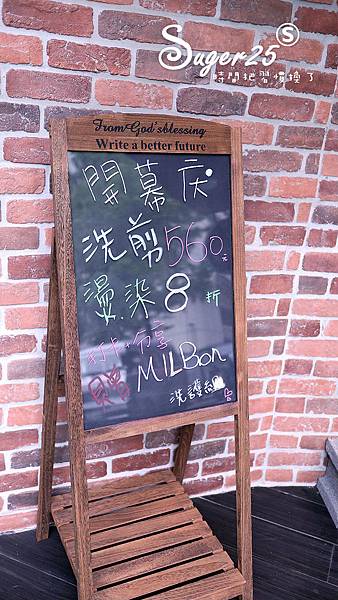 Suger25 S
時間把腦慣換了
From God'sblessing
Write a better future
開幕慶
洗剪560元
燙.染8折
打卡+分享
贈MILBon
洗護組